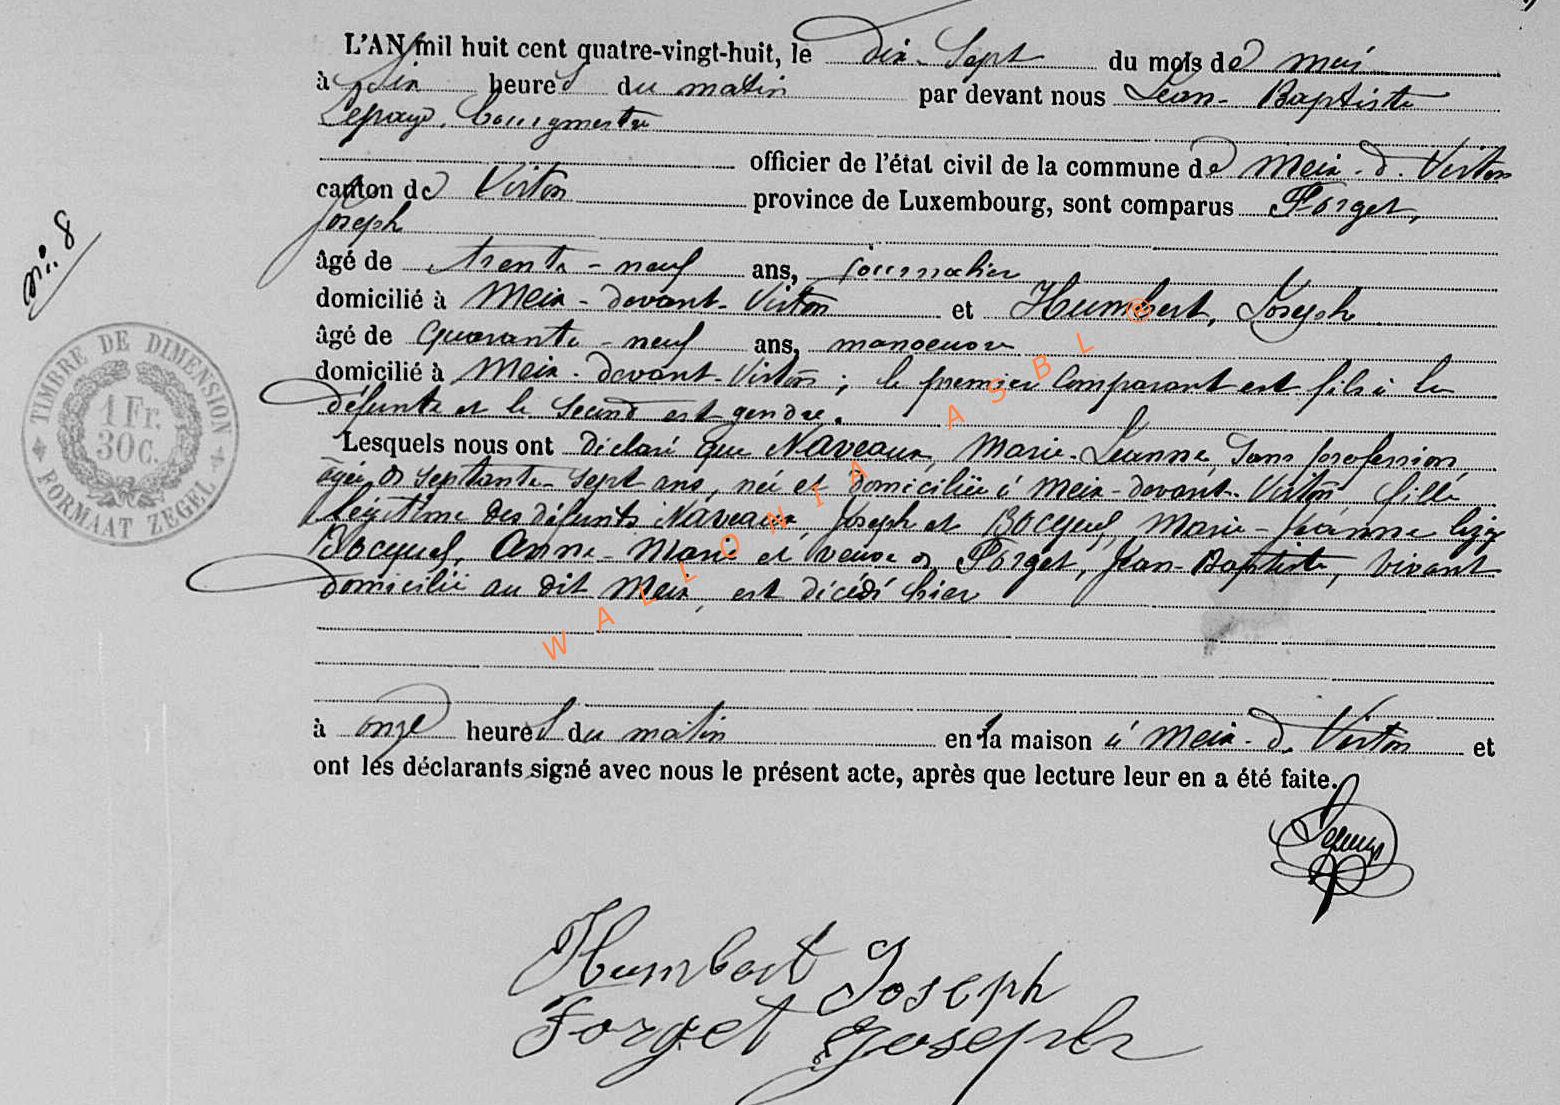 L'AN mil huit cent quatre-vingt-huit, le dix-Sept du mois de mai
à Six heures du matin par devant nous Jean-Baptiste
Lepage, bourgmestre
officier de l'état civil de la commune de Meix-d.Virton
canton de Virton province de Luxembourg, sont comparus Forget,
Joseph
âgé de trente-neuf ans, journalier
domicilié à Meix-devant-Virton et Humbert, Joseph
âgé de quarante-neuf ans, manoeuvre
domicilié à Meix-devant-Virton; le premier Comparant est fils à la
défunte et le Second est gendre.
Lesquels nous ont déclaré que Naveaux, Marie-Jeanne, Sans profession
agée de septante-sept ans, née et domiciliée à Meix-devant-Virton fille
légitime des défunts Naveaux, Joseph et Bocquel, Marie-Jeanne
Bocquel, Anne-Marie et veuve de Forget, Jean-Baptiste, vivant
domicilié au dit Meix, est décédé hier
à onze heures du matin en la maison à Meix-d.Virton et
ont les déclarants signé avec nous le présent acte, après que lecture leur en a été faite.
Humbert Joseph
Forget Joseph
No. 8
TIMBRE DE DIMENSION
1 Fr.
30C.
FORMAAT ZEGEL
WALLONIA ASBL @